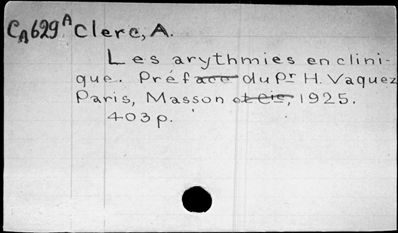 CA629A Clerc, A.
Les arythmies en clini-
que. Préface du Pr H. Vaquez
Paris, Masson et Cie, 1925.
403 p.